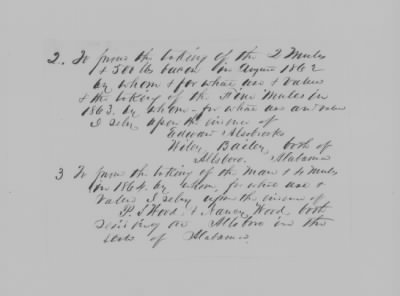 2. To prove the taking of the 2 Mules
& 500 lbs bacon in August 1862
by whom & for what use & value
& the taking of the Five Mules in
1863. by whom - for what use and value
I rely upon the evidence of
Edward Alsobrooks
Wiley Bailey both of
Allsboro. Alabama
3 To prove the taking of the Mare & 4 mules
in 1864. by whom, for what use &
value I rely upon the evidence of
P. S. Wood & Nancy Wood both
residing in Allsboro in the
State of Alabama